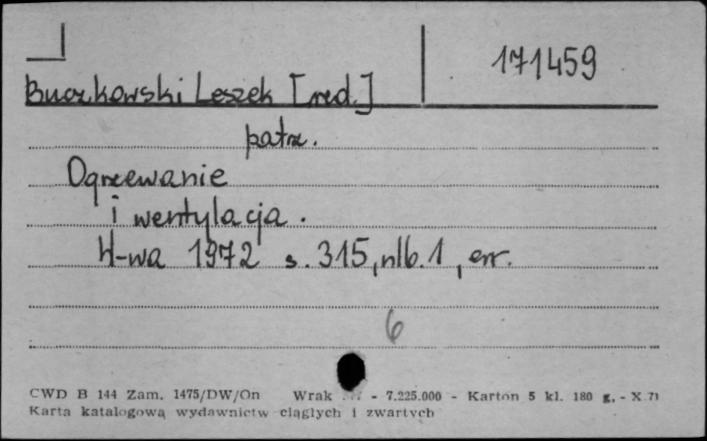 171459
Buczkowski Leszek [red.]
patrz.
Ogrzewanie
i wentylacja.
W-wa 1972 s. 315, nlb. 1, err.
6
CWD B 144 Zam. 1475/DW/On Wrak - 7.225.000 - Karton 5 kl. 180 g. - X.71
Karta katalogowa wydawnictw ciągłych i zwartych